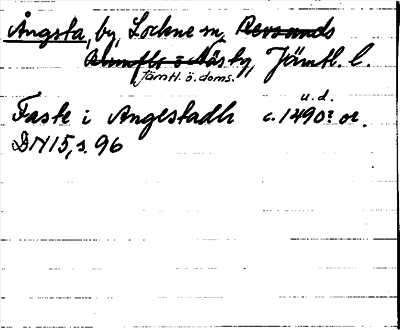 Ångsta, by, Lockne sn, Revsunds
Jämtl. l.
Jämtl. ö. doms.
Faste i Angestadh c. 1490? or.
u.d.
DN 15, s. 96